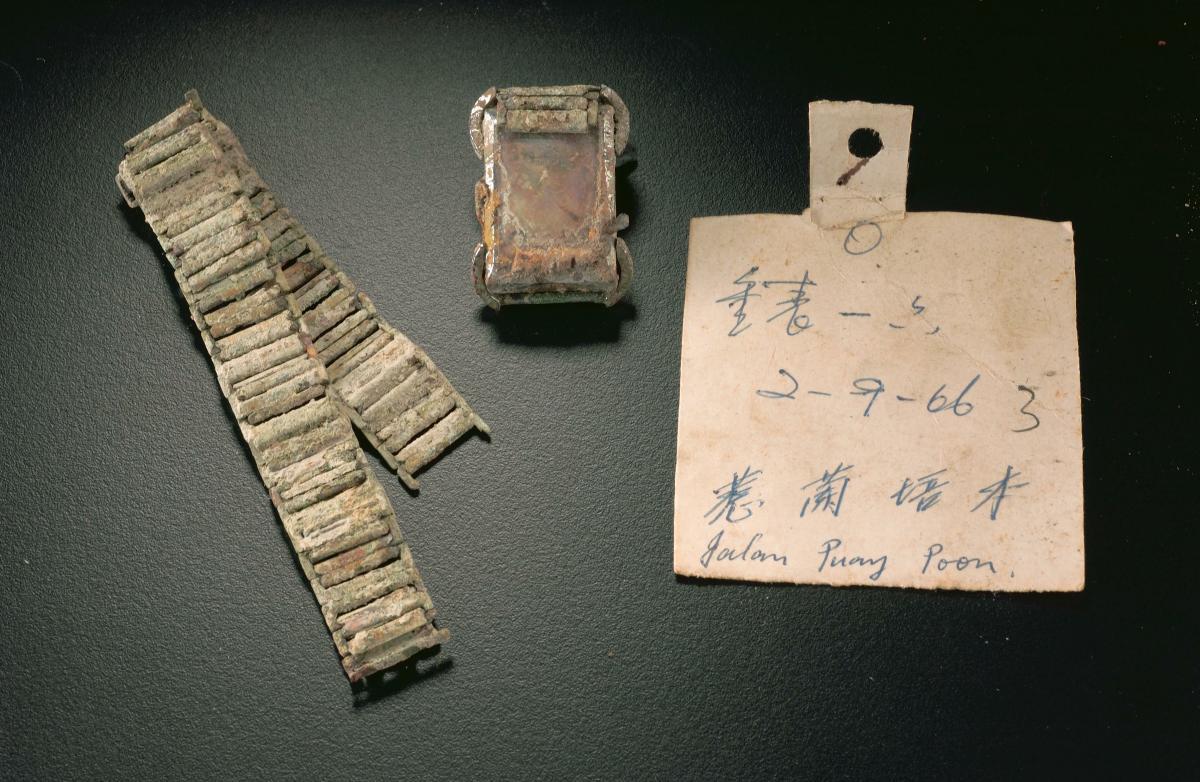 表一
2-9-66 3
惹蘭培本
Jalan Puay Poon.